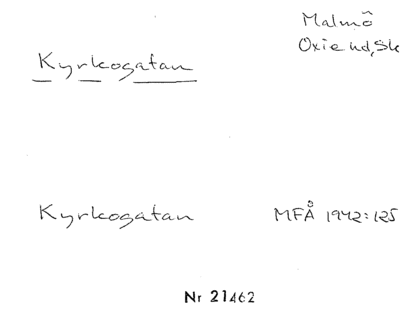 Malmö
Oxie hd, Sk
Kyrkogatan
Kyrkogatan MFÅ 1942:125
Nr 21462